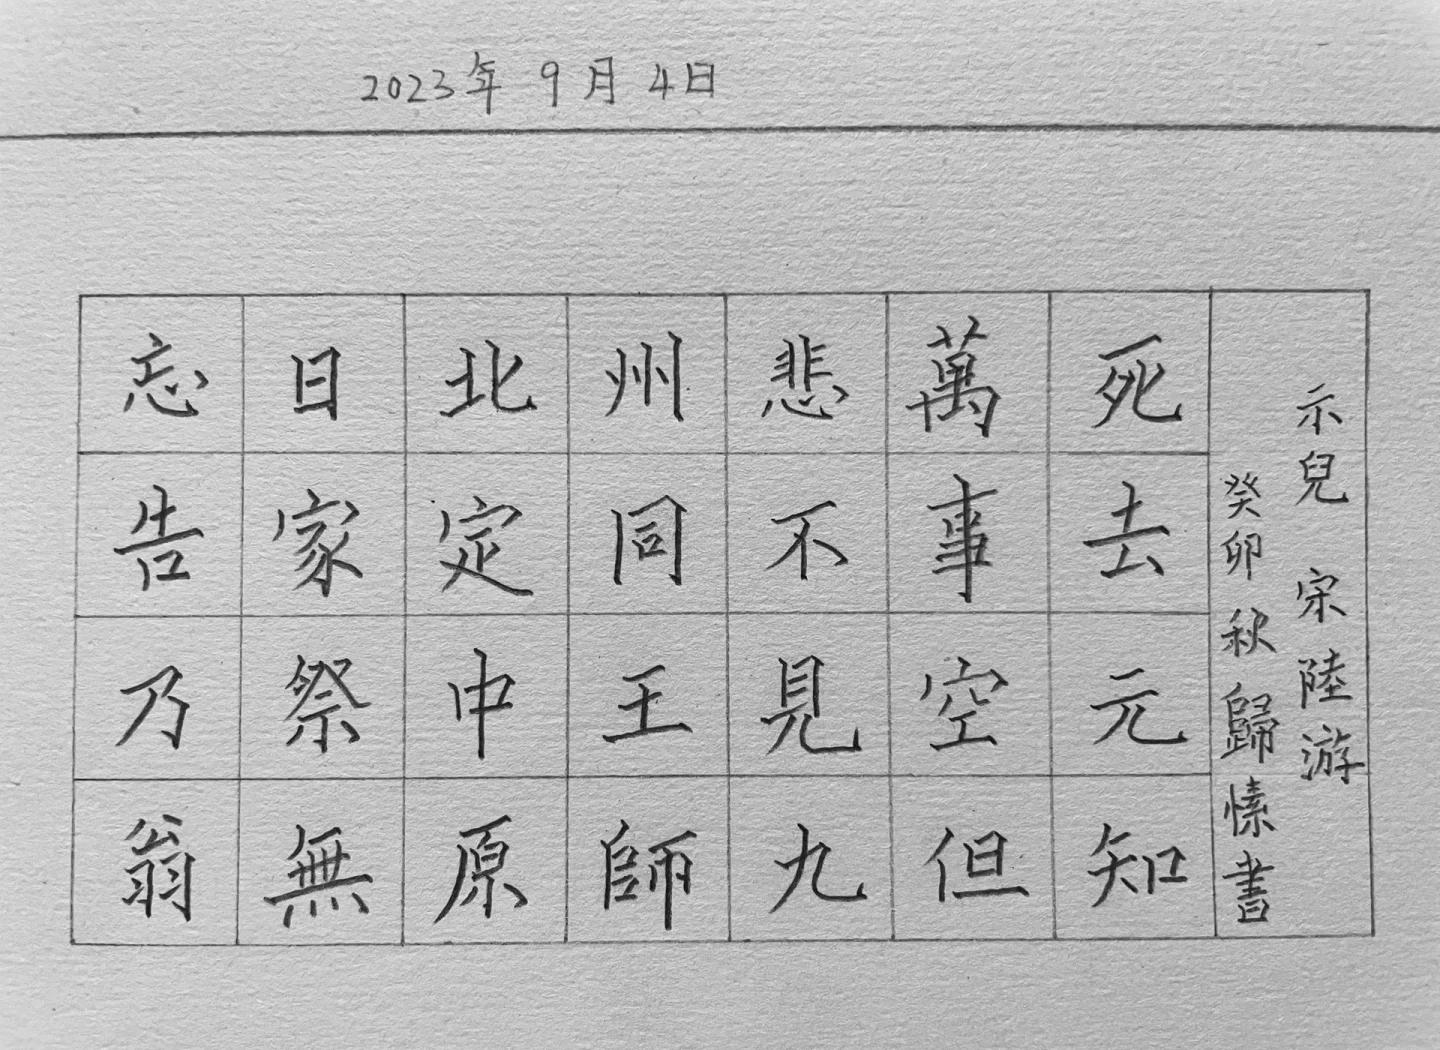 2023年 9月 4日
示兒 宗陸游
癸卯秋歸愫書
死去元知
萬事空但
悲不見九
州同王師
北定中原
日家祭無
忘告乃翁